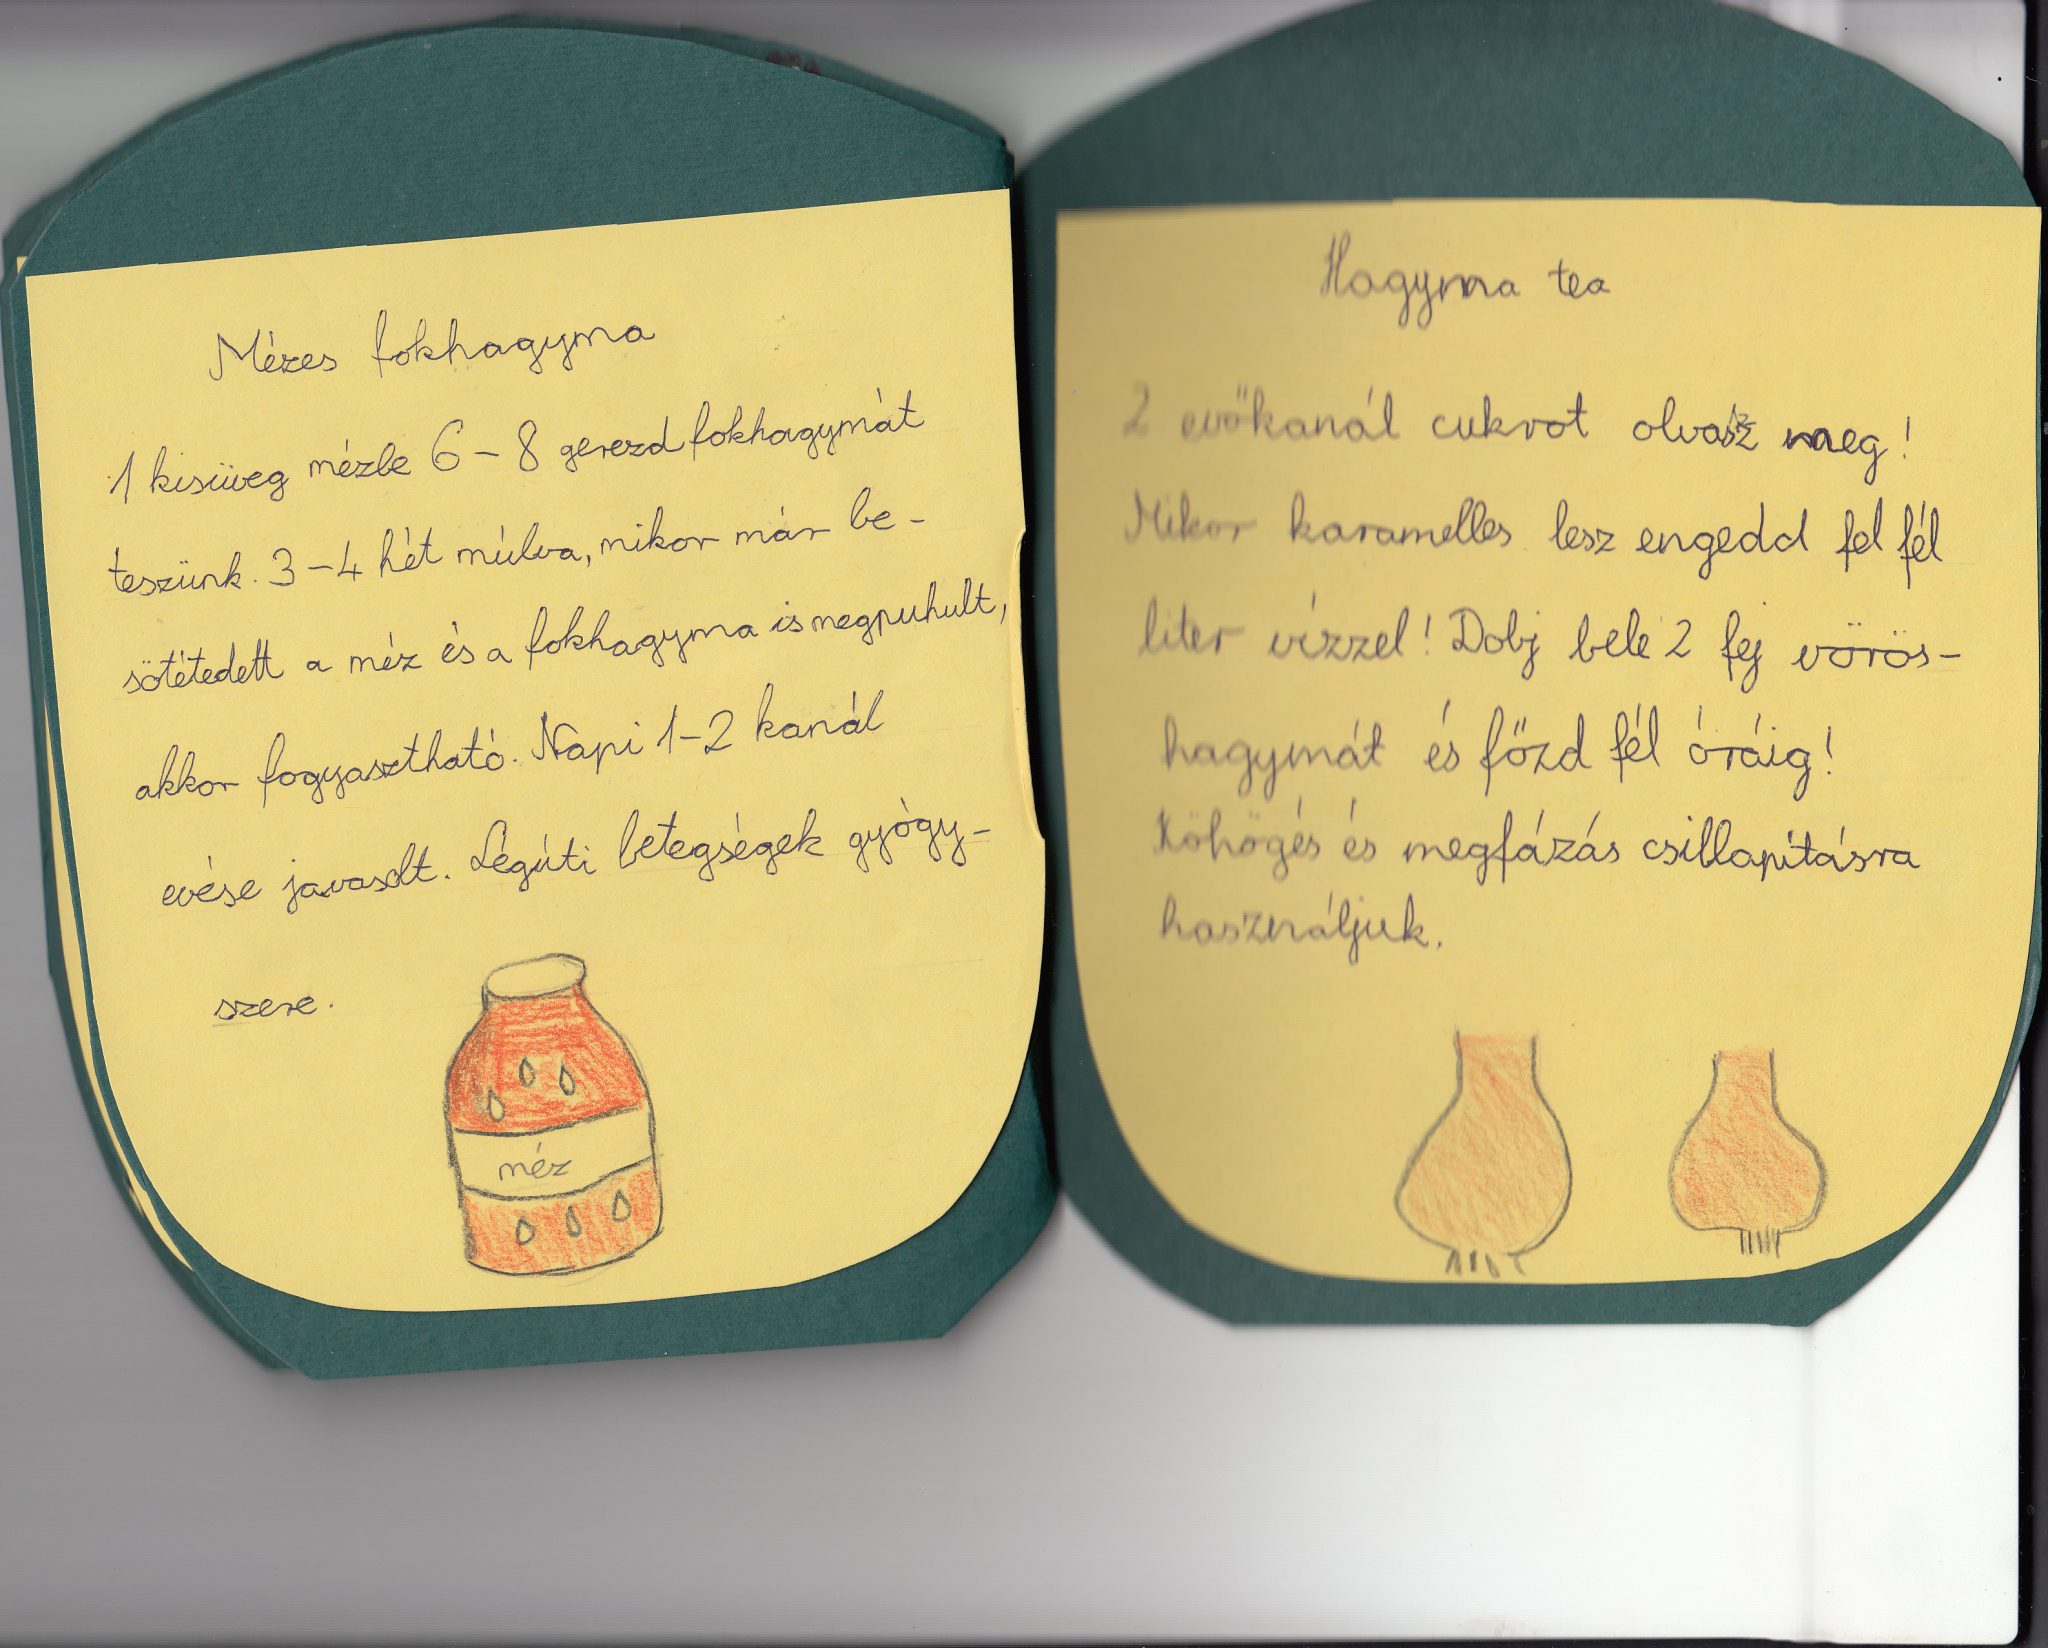 Mézes fokhagyma
1 kisüveg mézbe 6-8 gerezd fokhagymát
teszünk. 3-4 hét múlva, mikor már be-
sötétedett a méz és a fokhagyma is megpuhult,
akkor fogyasztható. Napi 1-2 kanál
evése javasolt. Légúti betegségek gyógy-
szere.
méz
Hagyma tea
2 evőkanál cukrot olvasz meg!
Mikor karamelles lesz engedd fel fél
liter vízzel! Dobj bele 2 fej vörös-
hagymát és főzd fél óráig!
Köhögés és megfázás csillapításra
használjuk.